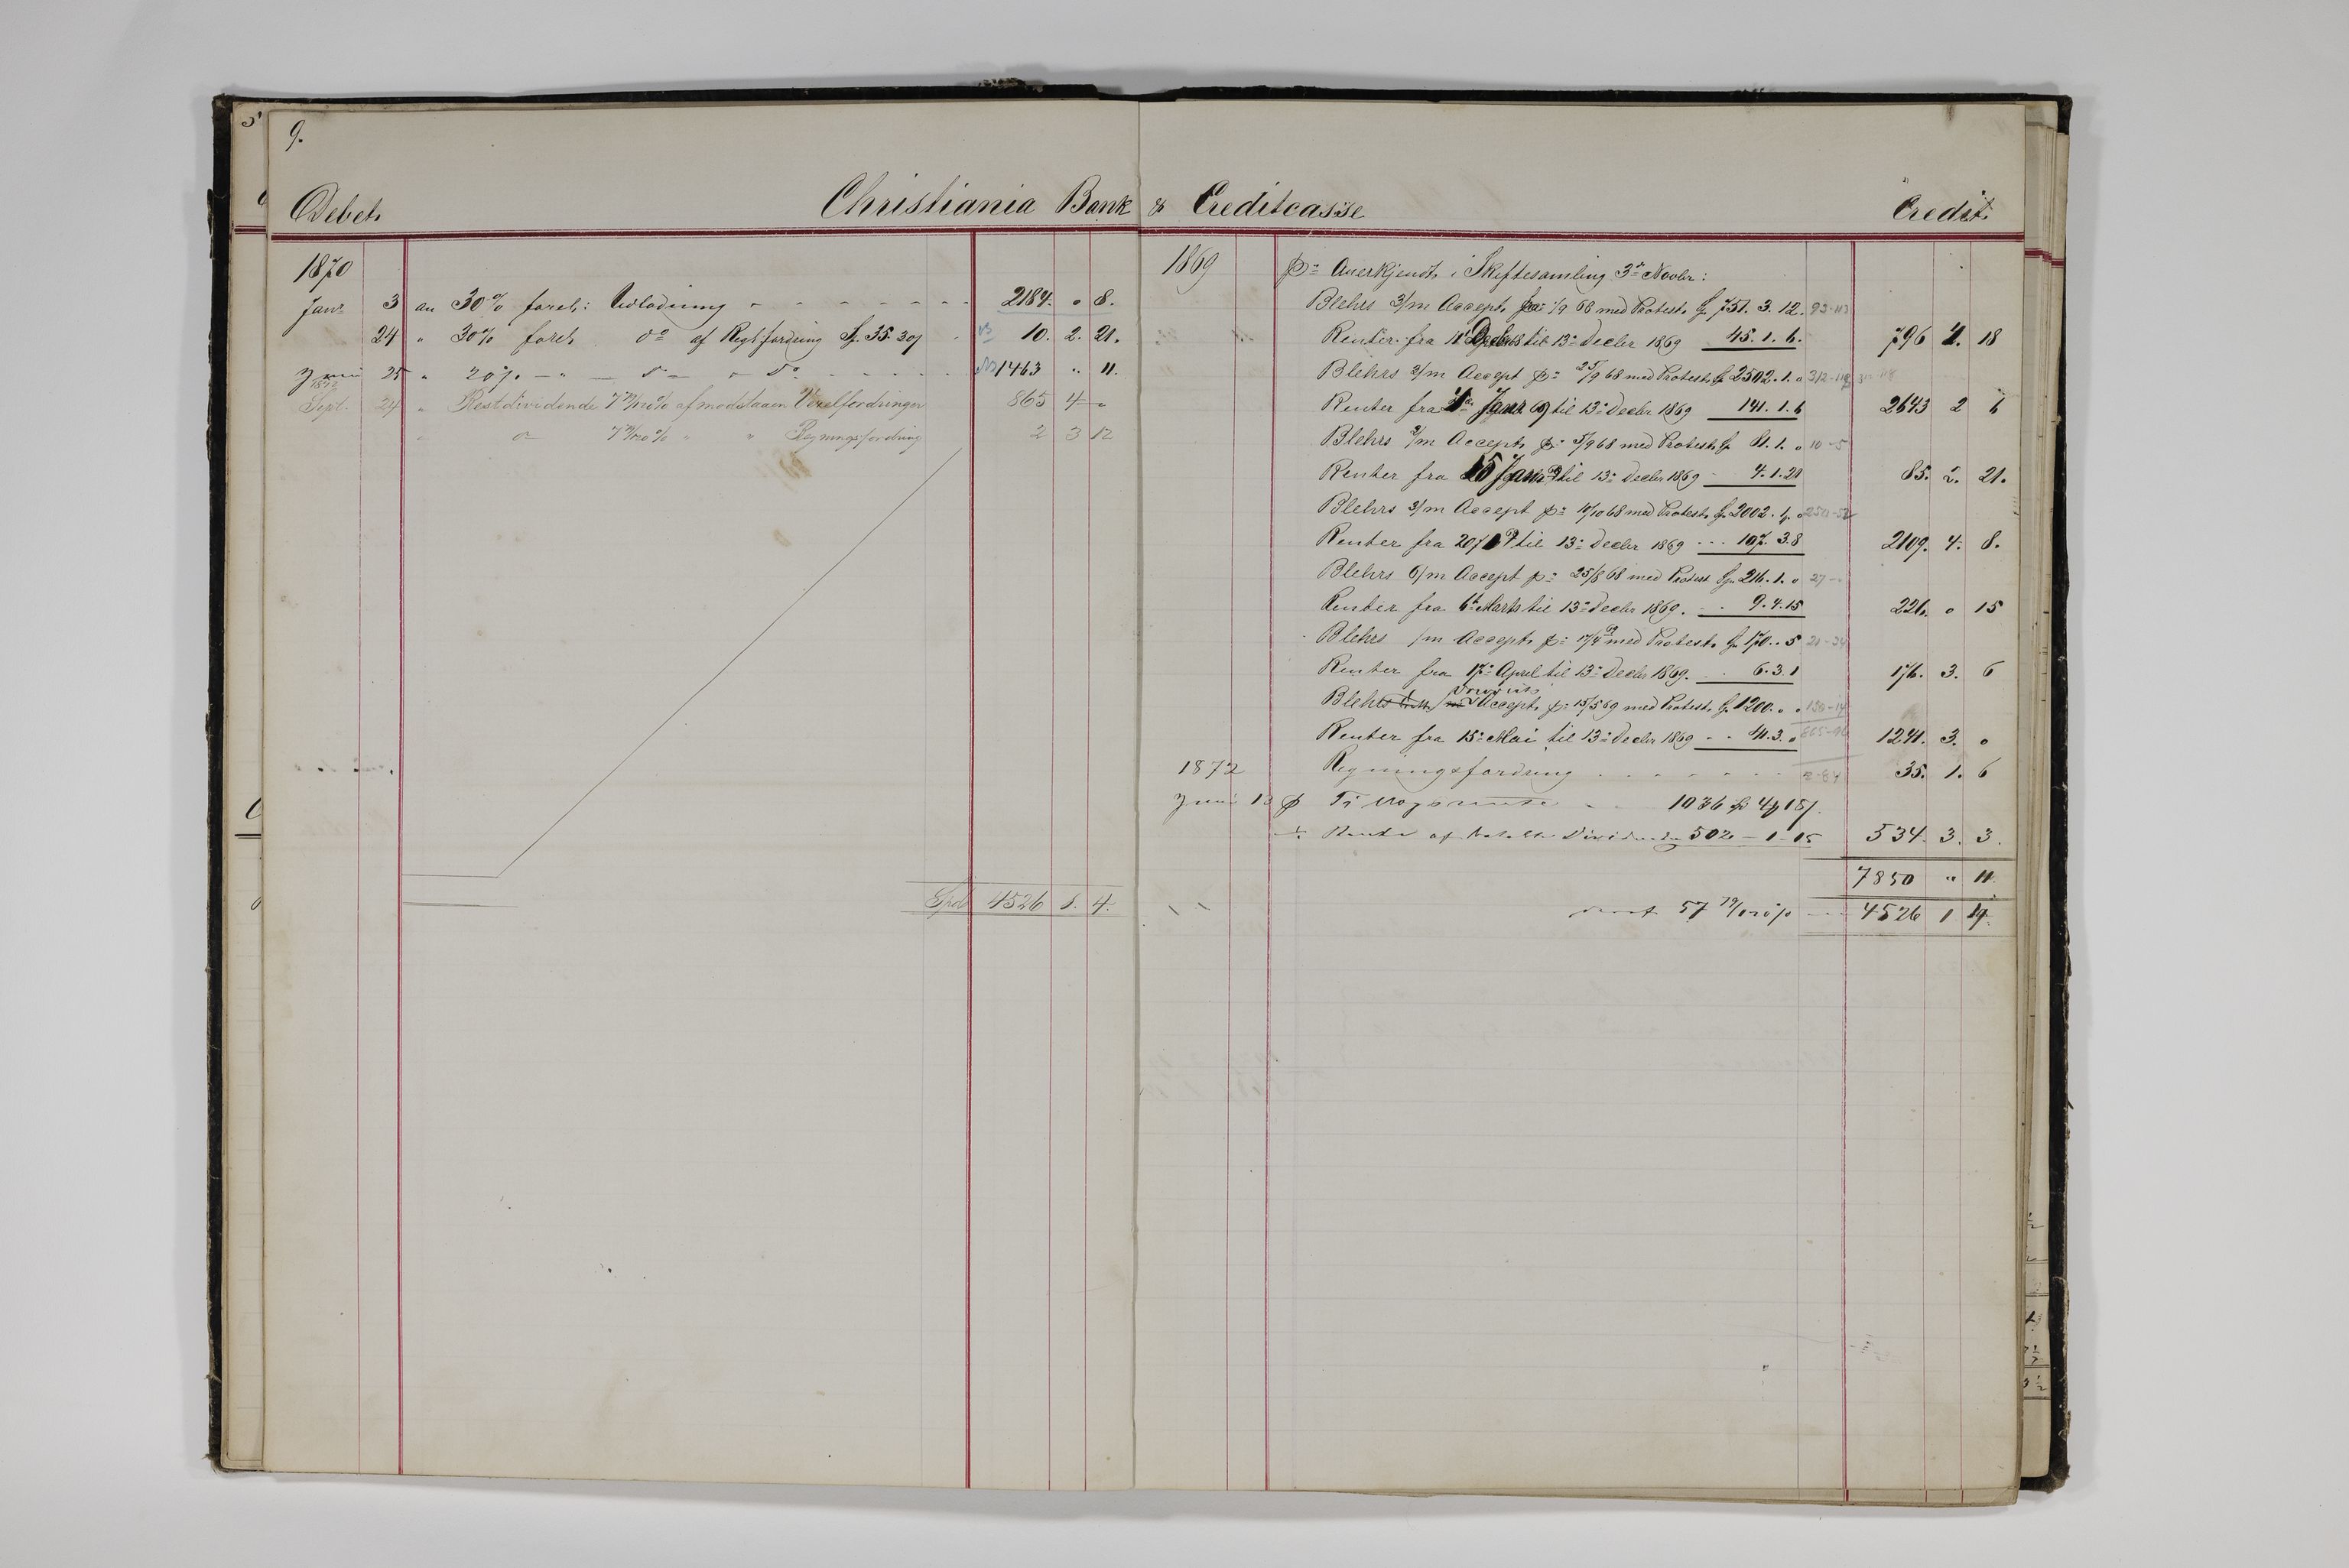 9.
Debet.
Christiania Bank & Creditcasse
Credit.
1870
Janr 3 an 30% forel: Udlodning 2184. 0 8.
24 " 30% forel. do af Regt fordring Sp. 35. 30 10. 2. 21.
Juni 25 " 20% — " — d — do 1463 " 11.
1872
Sept. 24 " Restdividende 7 79/120% af modstaaen Vexelfordringer 865 4 "
" do 7 79/120% " " Regningsfordring 2 3 12
Spd 4526 1. 4.
1869 pr Anerkjendt i Skiftesamling 3de Novbr:
Blehrs 3/m Accept pr 1/9 68 med Protest Sp 751. 3. 12. 93-113
Renter fra til 13de Decbr 1869 45. 1. 6. 796 4. 18
Blehrs 3/m Accept pr 25/9 68 med Protest Sp 2502. 1. 0
Renter fra Janr 69 til 13de Decbr 1869 141. 1. 6 2643 2 6
Blehrs 3/m Accept pr 5/9 68 med Protest Sp 81. 1. 0 10-5
Renter fra Janr til 13de Decbr 1869 4. 1. 21 85. 2. 21.
Blehrs 3/m Accept pr 17/10 68 med Protest Sp 2002. 1. 0
Renter fra til 13de Decbr 1869 107. 3. 8 2109. 4. 8.
Blehrs 6/m Accept pr 25/8 68 med Protest Sp 216. 1. 0 27
Renter fra 6te Marts til 13de Decbr 1869. 9. 4. 15 226. 0 15
Blehrs /m Accept pr 17/4 69 med Protest Sp 170. . 5
Renter fra 17de April til 13de Decbr 1869. 6. 3. 1 176. 3. 6
Blehrs Accept pr 15/5 69 med Protest Sp 1200. 0. 0
Renter fra 15de Mai til 13de Decbr 1869 41. 3. 0 1241. 3. 0
Regningsfordring 35. 1. 6
1872
Juni 13 pr Tilvoxrente 1036 Sp 4 18
÷ Rente af betalte Dividender 502 — 1 — 15 534. 3. 3.
7850 " 11.
57 79/120% 4526 1 4.